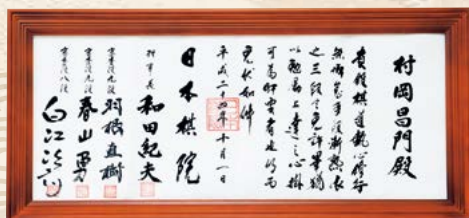 村岡昌門殿
貴殿棋道執心修行
無懈怠手段漸熟依
之三段令免許畢猶
以勉励上達之心掛
可為肝要者也仍而
免状如件
平成二十四年十月一日
日本棋院
理事長 和田紀夫
審査役九段 羽根直樹
審査役九段 春山勇
審査役八段 白江治